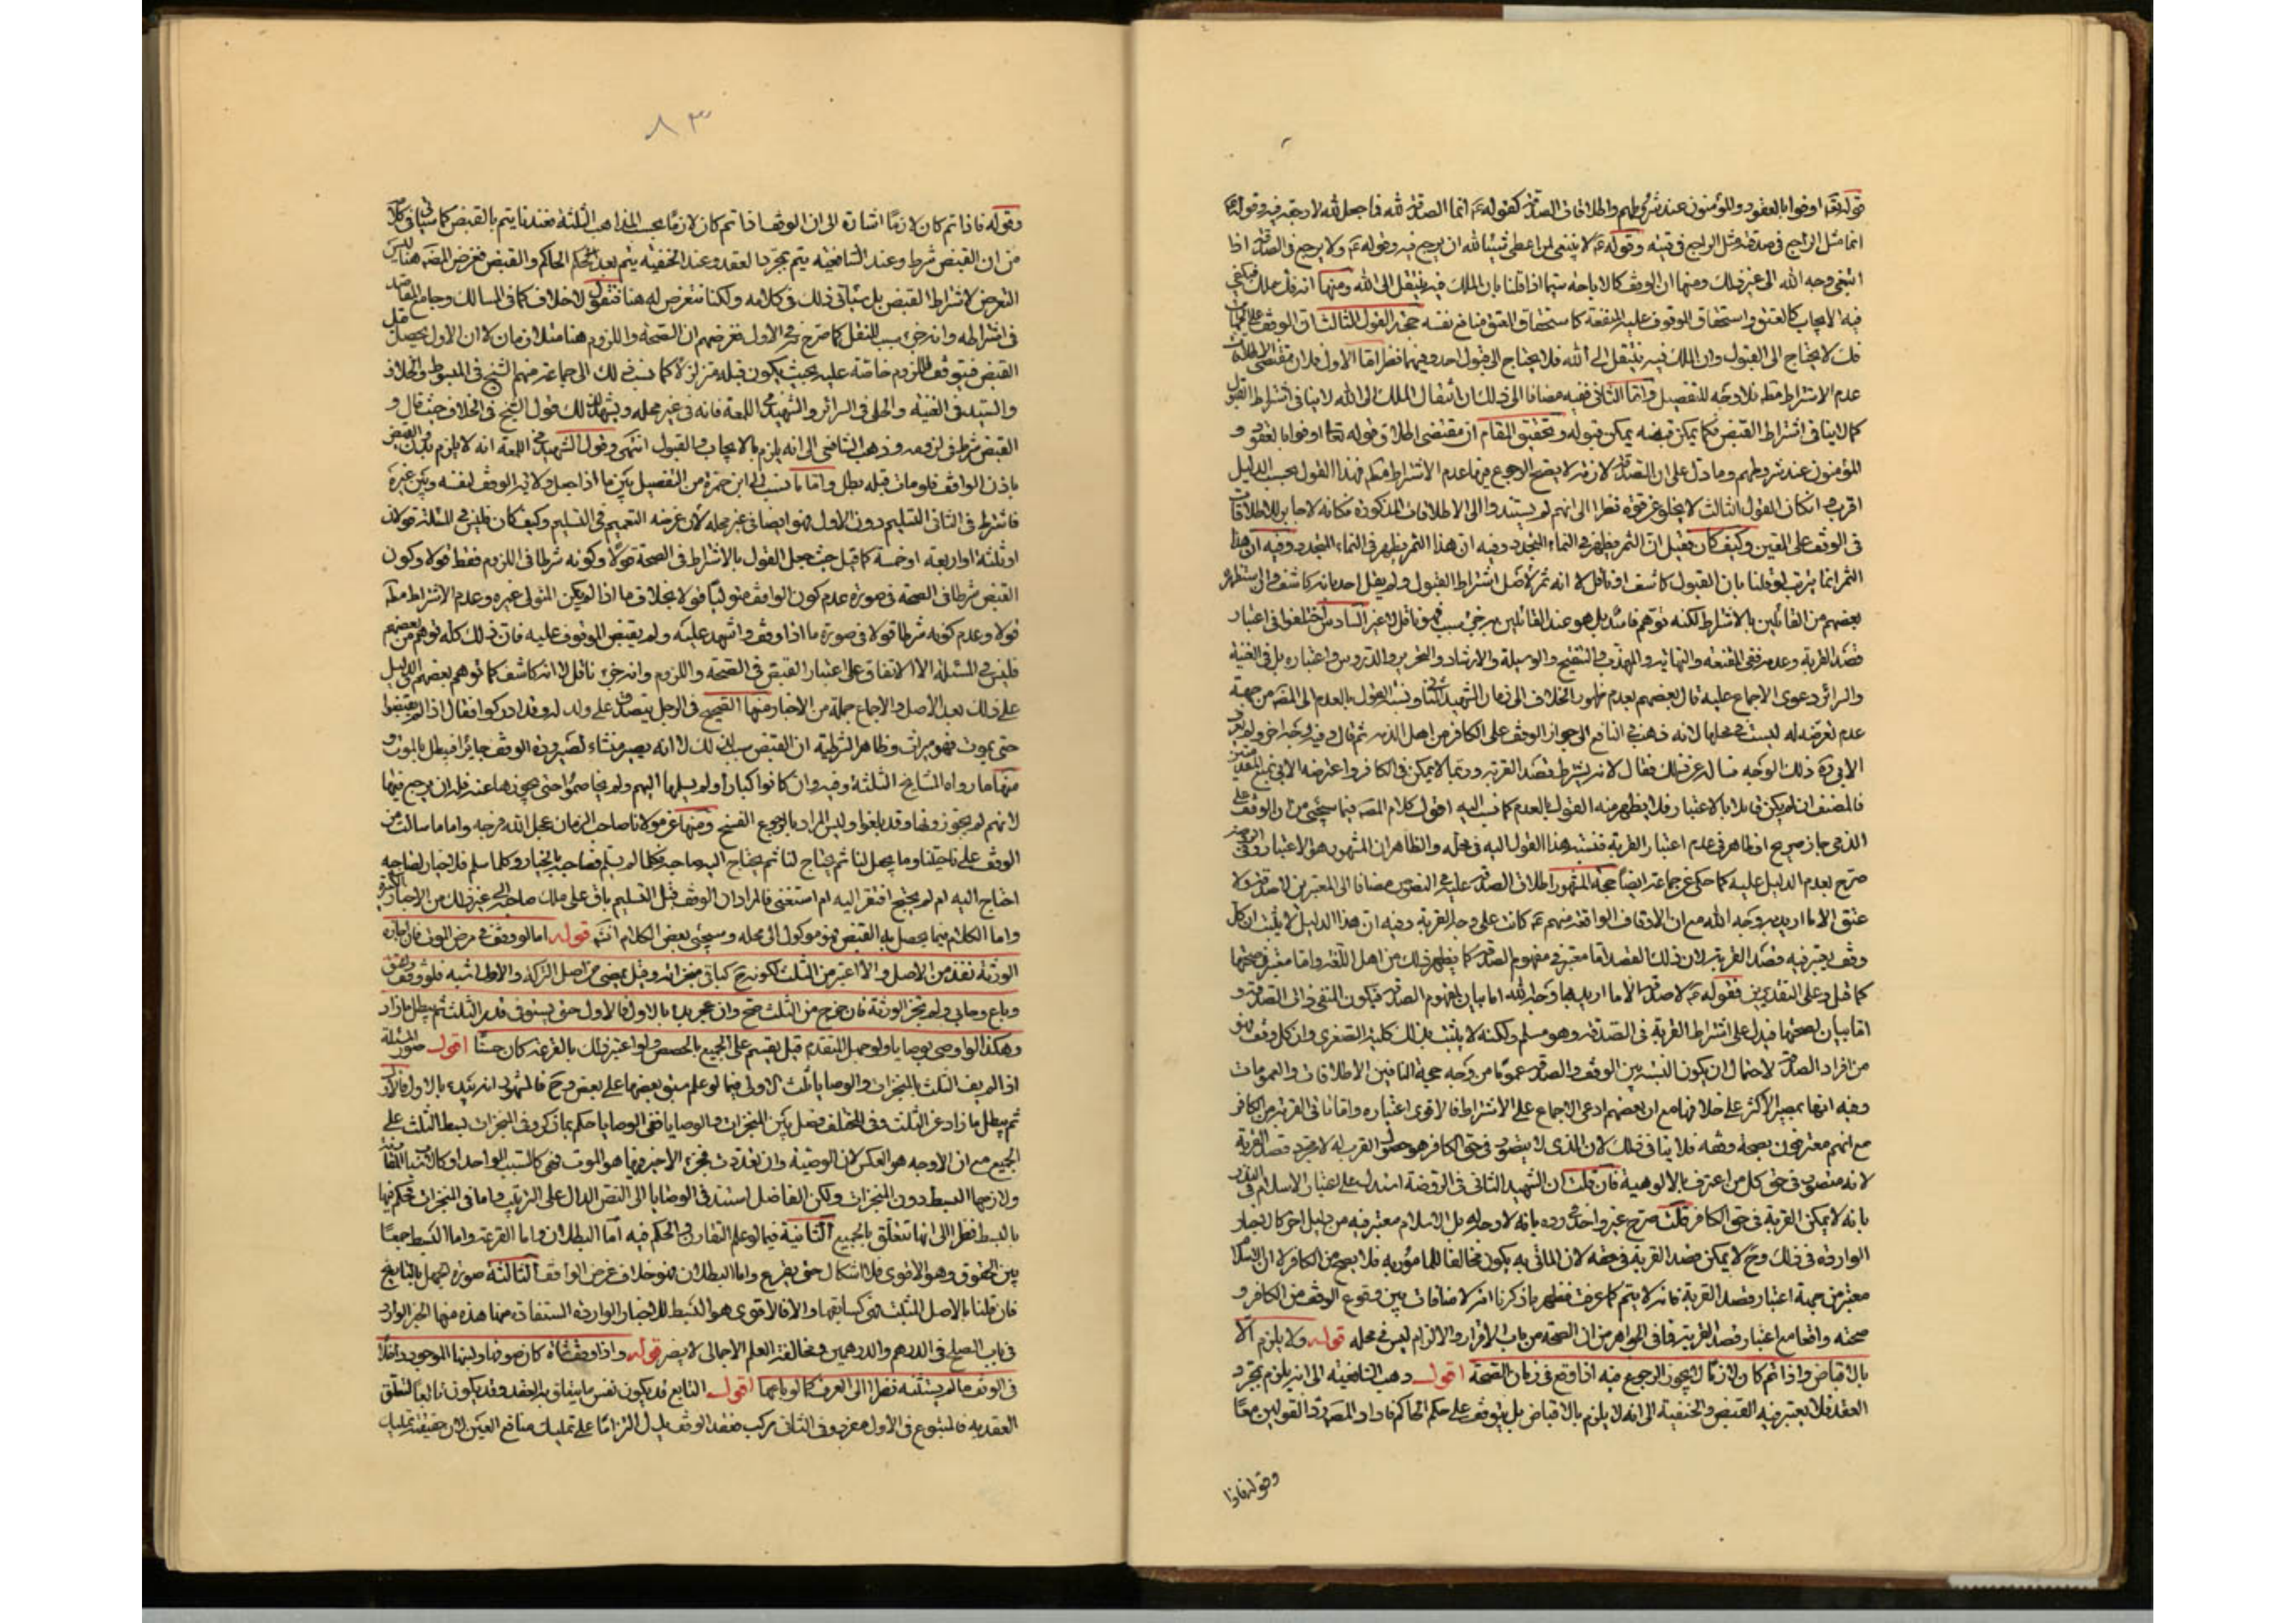 قوله تعالى اوفوا بالعقود والمؤمنون عند شروطهم واطلاقات الصدقة كقوله ع انما الصدقة لله فما جعل لله لا رجعة فيه وقوله ع
انما مثل الراجع في صدقته مثل الراجع في قيئه وقوله ع لا ينبغي لمن اعطى شيئا لله ان يرجع فيه وقوله ع ولا يرجع في الصدقة اذا
ابتغى وجه الله الى غير ذلك ومنها ان الوقف كالاباحة سيما اذا قلنا بان الملك فيه ينتقل الى الله ومنها انه فك ملك فيكفي
فيه الايجاب كالعتق واستحقاق الموقوف عليه المنفعة كاستحقاق العتق منافع نفسه حجة القول الثالث ان الوقف على
فك لا يحتاج الى القبول وان الملك فيه ينتقل الى الله فلا يحتاج الى قبول احد وفيهما نظر اما الاول فلان مقتضى الاطلاقات
عدم الاشتراط مطلقا فلا وجه للتفصيل واما الثاني ففيه مضافا الى ذلك ان انتقال الملك الى الله لا ينافي اشتراط القبول
كما لا ينافي اشتراط القبض فكما يمكن قبضه يمكن قبوله وتحقيق المقام ان مقتضى اطلاق قوله تعالى اوفوا بالعقود و
المؤمنون عند شروطهم وما دل على ان الصدقة لازمة لا يصح الرجوع فيها عدم الاشتراط مطلقا فهذا القول بحسب الدليل
اقرب وان كان القول الثالث لا يخلو عن قوة نظرا الى انهم لم يستندوا الى الاطلاقات المذكورة فكانه لا جابر للاطلاقات
في الوقف على المعين وكيف كان فقيل ان الثمر يظهر في النماء المتجدد وفيه ان هذا الثمر يظهر في النماء المتجدد وفيه ان هذا
الثمر انما يترتب لو قلنا بان القبول كاشف او ناقل لا انه ثمر لاصل اشتراط القبول ولم يقل احد بانه كاشف وان استظهر
بعضهم من القائلين بالاشتراط لكنه توهم فاسد بل هو عند القائلين به جزء سبب فهو ناقل لا غير السادس اختلفوا في اعتبار
قصد القربة وعدمه ففي المقنعة والنهاية والمهذب والتنقيح والوسيلة والارشاد والتحرير والدروس واعتباره بل في الغنية
والسرائر دعوى الاجماع عليه قال بعضهم بعدم ظهور الخلاف الى زمان الشهيد الثاني ونسبة القول بالعدم الى المصنف من جهة
عدم تعرضه له ليست في محلها لانه ذهب في النافع الى جواز الوقف على الكافر من اهل الذمة ثم قال وفيه وجه اخر ولم يعرف
الابي ره ذلك الوجه فساله عن ذلك فقال لانه يشترط قصد القربة وربما لا يمكن في الكافر واعترضه الابي بمنع
فالمصنف ان لم يكن قائلا بالاعتبار فلا يظهر منه القول بالعدم كما نسب اليه اقول كلام المصنف فيما سيجئ من ان الوقف على
الذمي جاز صريح او ظاهر في عدم اعتبار القربة فنسبة هذا القول اليه في محله والظاهر ان المشهور هو الاعتبار وفي
صرح بعدم الدليل عليه كما حكي عن جماعة ايضا حجة المشهور اطلاق الصدقة عليه في النصوص مضافا الى المعتبرين لا صدقة ولا
عتق الا ما اريد به وجه الله مع ان الاوقاف الواقعة منهم ع كانت على وجه القربة وفيه ان هذا الدليل لا يثبت ان كل
وقف يعتبر فيه قصد القربة لان ذلك القصد اما معتبر في مفهوم الصدقة كما يظهر ذلك من اهل اللغة واما معتبر في صحتها
كما قيل وعلى التقديرين فقوله ع لا صدقة الا ما اريد بها وجه الله اما بيان لمفهوم الصدقة فيكون المنفي ذات الصدقة و
اما بيان لصحتها فيدل على اشتراط القربة في الصدقة وهو مسلم ولكنه لا يثبت بذلك كلية الصغرى وان كل وقف فهو
من افراد الصدقة لاحتمال ان يكون النسبة بين الوقف والصدقة عموما من وجه حجة النافين الاطلاقات والعمومات
وفيه انها بمصير الاكثر على خلافها مع ان بعضهم ادعى الاجماع على الاشتراط فالاقوى اعتباره واما نافي القربة من الكافر
مع انهم معترفون بصحة وقفه فلا ينافي ذلك لان الذي لا يتصور في حق الكافر هو حصول القرب له لا مجرد قصد القربة
لانه متصور في حق كل من اعترف بالالوهية فان قلت ان الشهيد الثاني في الروضة استدل على اعتبار الاسلام في
بانه لا يمكن القربة في حق الكافر قلت صرح غير واحد في رده بانه لا وجه له بل الاسلام معتبر فيه من دليل اخر كالاخبار
الواردة في ذلك وح لا يمكن قصد القربة في حقه لان الماتي به يكون مخالفا للمامور به فلا يصح من الكافر لا ان الاسلام
معتبر من جهة اعتبار قصد القربة فانه لا يتم كما عرفت فظهر بما ذكرنا انه لا منافات بين وقوع الوقف من الكافر و
صحته واقعا مع اعتبار قصد القربة فما في الجواهر من ان الصحة من باب الاقرار والالزام ليس في محله قوله ولا يلزم الا
بالاقباض واذا تم كان لازما لا يجوز الرجوع فيه اذا وقع في زمان الصحة اقول ذهب الشافعية الى انه يلزم بمجرد
العقد فلا يعتبر فيه القبض والحنفية الى انه لا يلزم بالاقباض بل يتوقف على حكم الحاكم فاراد المصنف رد القولين معا
وقوله فاذا
٨٣
وقوله فاذا تم كان لازما اشارة الى ان الوقف اذا تم كان لازما بحسب المذاهب الثلثة فعندنا يتم بالقبض كما سياتي في كلامه
من ان القبض شرط وعند الشافعية يتم بمجرد العقد وعند الحنفية يتم بعد حكم الحاكم والقبض فغرض المصنف هنا ليس
التعرض لاشتراط القبض بل سياتي ذلك في كلامه ولكنا نتعرض له هنا فنقول لا خلاف كما في المسالك وجامع المقاصد
في اشتراطه وانه جزء سبب للنقل كما صرح في الاول فغرضهم ان الصحة واللزوم هنا متلازمان لا ان الاول يحصل قبل
القبض فيتوقف اللزوم خاصة عليه بحيث يكون قبله متزلزلا كما نسب ذلك الى جماعة منهم الشيخ في المبسوط والخلاف
والسيد في الغنية والحلي في السرائر والشهيد في اللمعة فانه في غير محله ويشهد لذلك قول الشيخ في الخلاف حيث قال و
القبض شرط في لزومه وذهب الشافعي الى انه يلزم بالايجاب والقبول انتهى وقول الشهيد في اللمعة انه لا يلزم بدون القبض
باذن الواقف فلو مات قبله بطل واما ما نسب الى ابن حمزة من التفصيل بين ما اذا جعل ولاية الوقف لنفسه وبين غيره
فاشترط في الثاني التسليم دون الاول فهو ايضا في غير محله لان غرضه التعميم في التسليم وكيف كان فليس في المسئلة قولان
او ثلثة او اربعة او خمسة كما قيل حيث جعل القول بالاشتراط في الصحة قولا وكونه شرطا في اللزوم فقط قولا وكون
القبض شرطا في الصحة في صورة عدم كون الواقف متوليا قولا بخلاف ما اذا لم يكن المتولي غيره وعدم الاشتراط مطلقا
قولا وعدم كونه شرطا قولا في صورة ما اذا وقف واشهد عليه ولم يقبض الموقوف عليه فان ذلك كله توهم من بعضهم
فليس في المسئلة الا الاتفاق على اعتبار القبض في الصحة واللزوم وانه جزء ناقل لا انه كاشف كما توهم بعضهم والدليل
على ذلك بعد الاصل والاجماع جملة من الاخبار منها الصحيح في الرجل يتصدق على ولد له وقد ادركوا فقال اذا لم يقبضوا
حتى يموت فهو ميراث وظاهر الشرطية ان القبض سبب لذلك لا انه يصير منشاء لصيرورة الوقف جايزا فيبطل بالموت و
منها ما رواه المشايخ الثلثة وفيه وان كانوا كبارا ولم يسلمها اليهم ولم يخاصموا حتى يحوزوها عنه فله ان يرجع فيها
لانهم لم يحوزوها وقد بلغوا وليس المراد بالرجوع الفسخ ومنها عن مولانا صاحب الزمان عجل الله فرجه واما ما سالت من
الوقف على ناحيتنا وما يجعل لنا ثم يحتاج اليه صاحبه فكلما لم يسلم فصاحبه بالخيار وكلما سلم فلا خيار لصاحبه
احتاج اليه ام لم يحتج افتقر اليه ام استغنى فالمراد ان الوقف قبل التسليم باق على ملك صاحبه الى غير ذلك من الاخبار الكثيرة
واما الكلام فيما يحصل به القبض فهو موكول الى محله وسيجئ بعض الكلام انشاء قوله اما لو وقف في مرض الموت فان اجازه
الورثة نفذ من الاصل والا اعتبر من الثلث لكونه ح كباقي منجزاته وقيل يمضي من اصل التركة والاول اشبه فلو وقف واعتق
وباع وحابى ولم تجز الورثة فان خرج من الثلث صح وان عجز بدء بالاول فالاول حتى يستوفى قدر الثلث ثم يبطل ما زاد
وهكذا لو اوصى بوصايا ولو جهل المتقدم قيل يقسم على الجميع بالحصص ولو اعتبر ذلك بالقرعة كان حسنا اقول صور المسئلة
اذا لم يف الثلث بالمنجزات والوصايا ثلث الاولى فيما لو علم سبق بعضها على بعض وح فالمشهور انه يبدء بالاول فالاول
ثم يبطل ما زاد عن الثلث وفي المختلف فصل بين المنجزات والوصايا ففي الوصايا حكم بما ذكر وفي المنجزات ببسط الثلث على
الجميع مع ان الاوجه هو العكس لان الوصية وان تعددت فجزء الاخير منها هو الموت فهي كالسبب الواحد او كالاسباب
ولازمها البسط دون المنجزات ولكن الفاضل استند في الوصايا الى النص الدال على الترتيب واما في المنجزات فحكم فيها
بالبسط نظرا الى انها تتعلق بالجميع الثانية فيما لو علم التقارن والحكم فيه اما البطلان واما القرعة واما البسط جمعا
بين الحقوق وهو الاقوى فلا اشكال حتى يقرع واما البطلان فهو خلاف غرض الواقف الثالثة صورة الجهل بالتاريخ
فان قلنا بالاصل المثبت فهي كسابقها والا فالاقوى هو البسط للاخبار الواردة المستفادة منها هذه منها الخبر الوارد
في باب الصلح في الدرهم والدرهمين ومخالفة العلم الاجمالي لا يضر قوله واذا وقف شاة كان صوفها ولبنها الموجود داخلا
في الوقف ما لم يستثنه نظرا الى العرف كما لو باعها اقول التابع قد يكون نفس ما يتعلق به العقد وقد يكون تابعا لتعلق
العقد به فالمتبوع في الاول مفرد وفي الثاني مركب فعقد الوقف يدل التزاما على تمليك منافع العين لان حقيقته تمليك